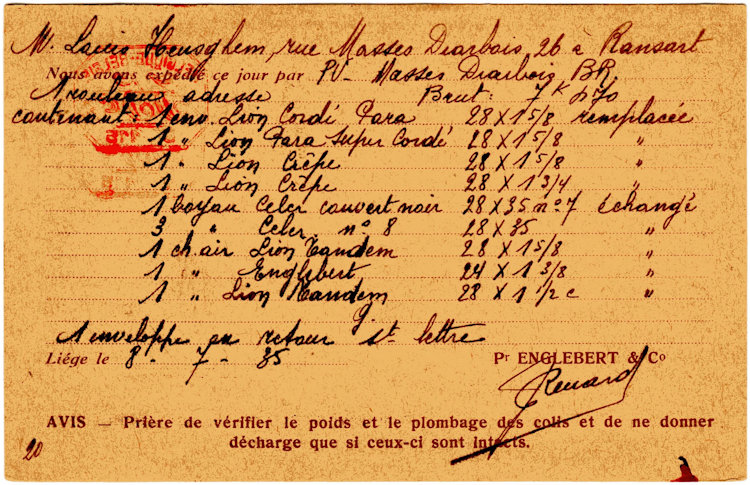 Mr. Louis Heusghem, rue Masses Diarbois, 26 à Ransart
Nous avons expédié ce jour par PV - Masses Diarbois, BR.
1 rouleau adresse Brut : 7 K 570
contenant : 1 env. Lion Cordé Para 28 X 1 5/8 remplacée
1 " Lion Para Super Cordé 28 X 1 5/8 "
1 " Lion Crêpe 28 X 1 5/8 "
1 " Lion Crêpe 28 X 1 3/4 "
1 boyau Celer couvert noir 28 X 35 no 7 échangé
3 " Celer no 8 28 X 35 "
1 ch. air Lion Tandem 28 X 1 5/8 "
1 " Englebert 24 X 1 3/8 "
1 " Lion Tandem 28 X 1 1/2 c "
1 enveloppe en retour st lettre
Liége le 8 - 7 - 35 Pr ENGLEBERT & Co
Renard
AVIS — Prière de vérifier le poids et le plombage des colis et de ne donner
décharge que si ceux-ci sont intacts.
20